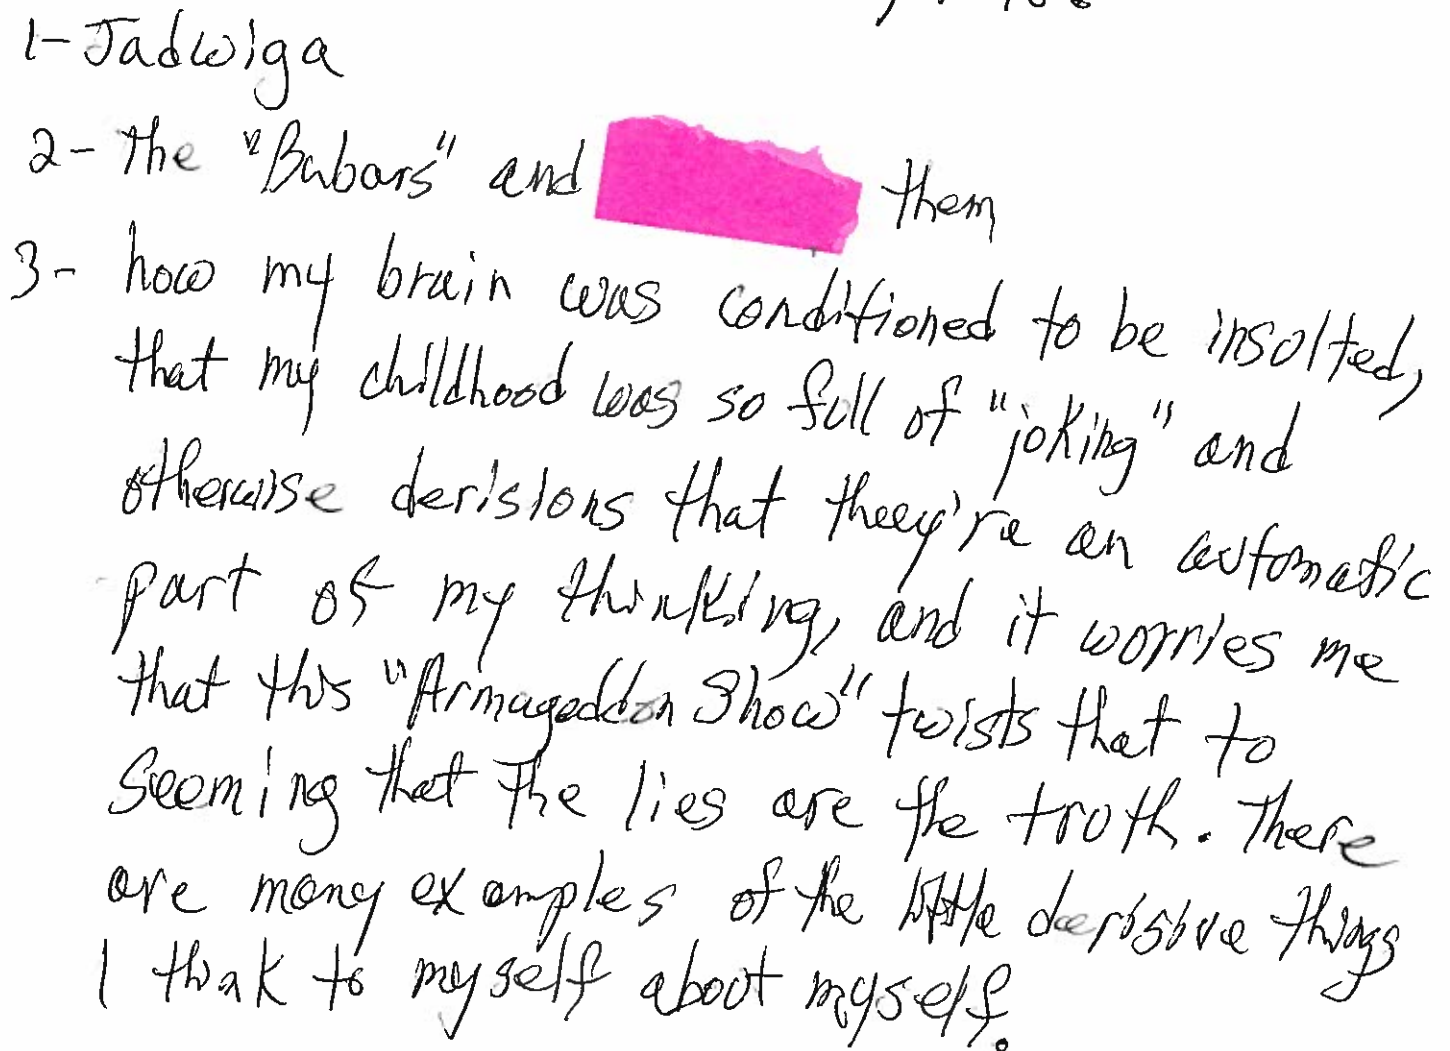 1- Jadwiga
2- the "Babars" and them
3- how my brain was conditioned to be insolted,
that my childhood was so full of "joking" and
otherwise derisions that theey're an automatic
part of my thinking, and it worries me
that this "Armageddon Show" twists that to
seeming that the lies are the troth. There
are many examples of the little derisive things
I think to myself about myself.